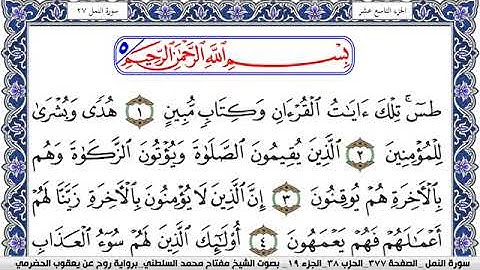 الجزء التاسع عشر
سورة النمل ٢٧
بِسْمِ اللَّهِ الرَّحْمَٰنِ الرَّحِيمِ
طسٓ ۚ تِلْكَ ءَايَاتُ الْقُرْءَانِ وَكِتَابٍ مُّبِينٍ ١ هُدًى وَبُشْرَىٰ
لِلْمُؤْمِنِينَ ٢ الَّذِينَ يُقِيمُونَ الصَّلَوٰةَ وَيُؤْتُونَ الزَّكَوٰةَ وَهُم
بِالْآخِرَةِ هُمْ يُوقِنُونَ ٣ إِنَّ الَّذِينَ لَا يُؤْمِنُونَ بِالْآخِرَةِ زَيَّنَّا لَهُمْ
أَعْمَٰلَهُمْ فَهُمْ يَعْمَهُونَ ٤ أُولَٰٓئِكَ الَّذِينَ لَهُمْ سُوٓءُ الْعَذَابِ
سورة النمل _الصفحة ٣٧٧_ الحزب ٣٨_ الجزء ١٩ _ بصوت الشيخ مفتاح محمد السلطني_ برواية روح عن يعقوب الحضرمي